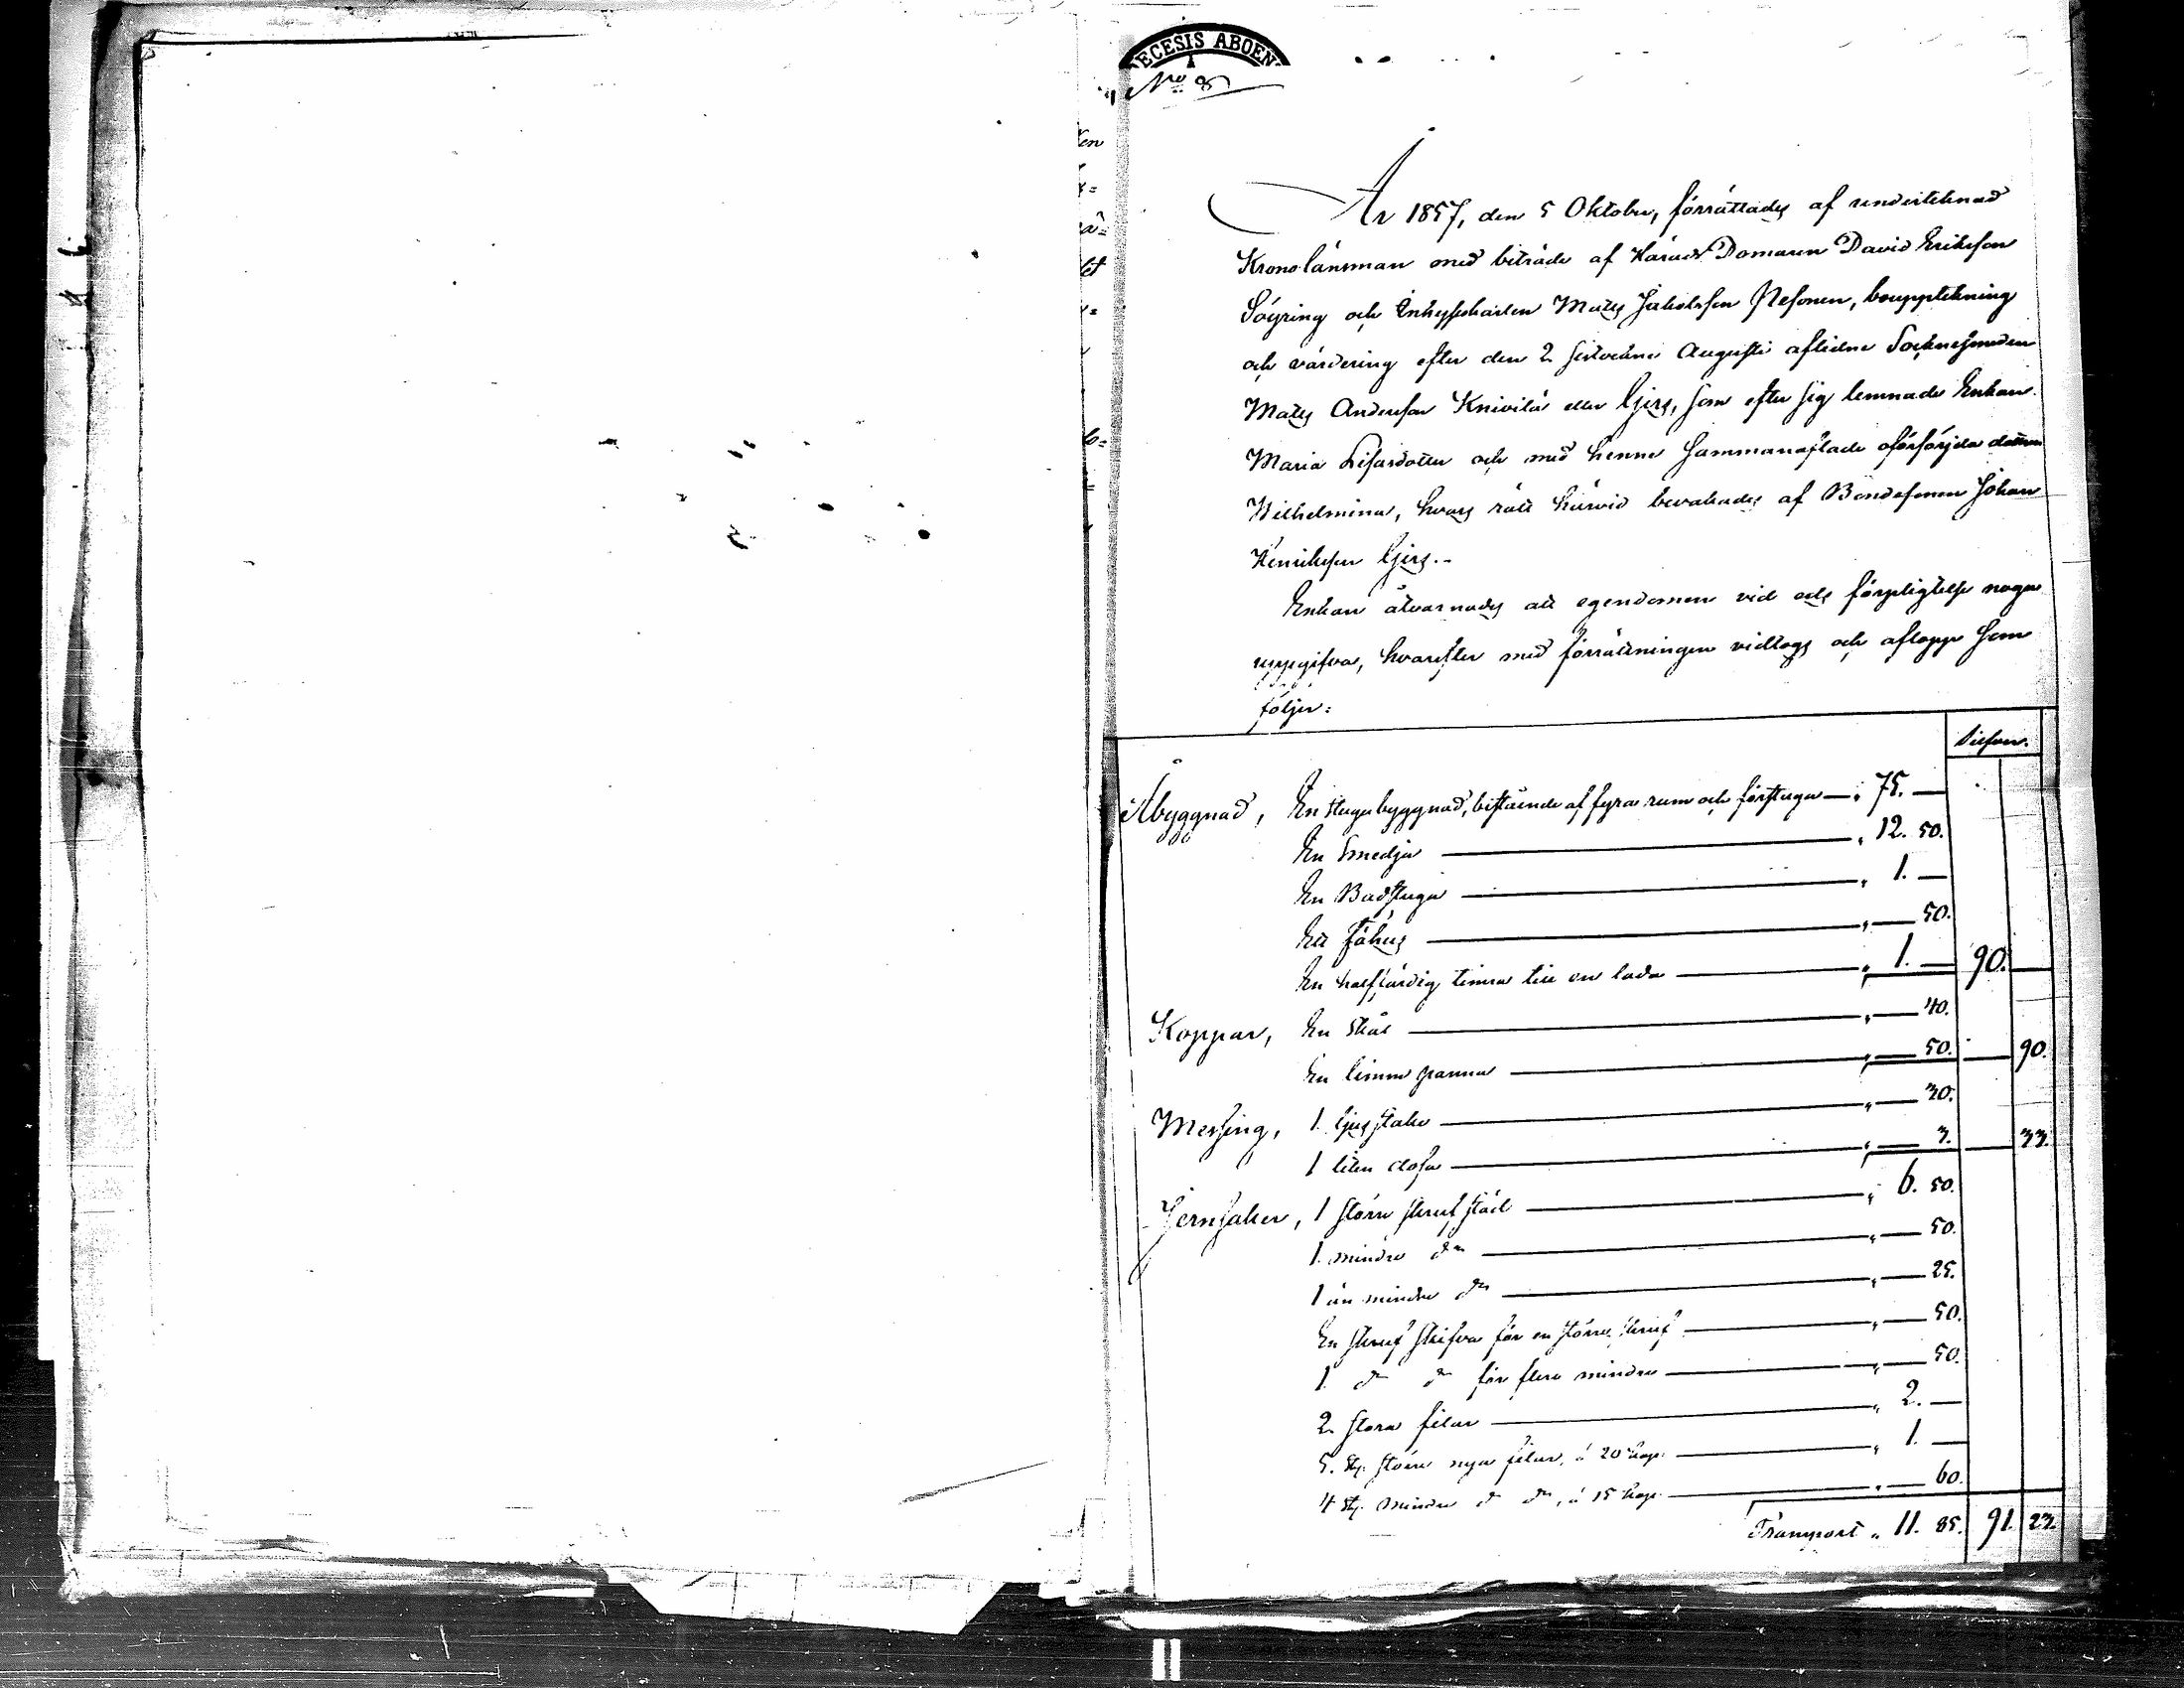 ECESIS ABOEN
No 8
År 1857, den 5 Oktober, förrättades af undertecknad
Kronolänsman med biträde af Härads Domaren David Eriksson
Söyring och Inhysekarlen Mats Jakobsson Nesonen, bouppteckning
och värdering efter den 2 sistvekne Augusti aflidne Socknesmeden
Mats Andersson Knivilä eller Gers, som efter sig lemnade Enkan
Maria Lisasdotter och med henne sammanaflade oförsörjda dottren
Wilhelmina, hvars rätt härvid bevakades af Bondesonen Johan
Henriksson Gers.-
Enkan åtvarnades att egendomen vid eds förpligtelse noga
uppgifva, hvarefter med förrättningen vidtogs och aflopp som
följer:
Silfver.
Åbyggnad, En stugubyggnad, bestående af fyra rum och förstuga — " 75. —
En Smedja — " 12. 50.
En Badstuga — " 1. —
Ett fähus — " — 50.
En halffärdig timra till en lada — " 1. — 90. —
Koppar, En skål — " — 40.
En limm panna — " — 50. — 90.
Messing, 1 ljusstake — " — 30.
1 liten dosa — " — 3. — 33.
Jernsaker, 1 större skruf städ — " 6. 50.
1 mindre do — " — 50.
1 än mindre do — " — 25.
En skruf skifva för en större skruf — " — 50.
1 do do för flere mindre — " — 50.
2 stora filar — " 2. —
5 st. större nya filar, á 20 kop. — " 1. —
4 st. mindre do do, á 15 kop. — " — 60.
Transport " 11. 85. 91. 23.